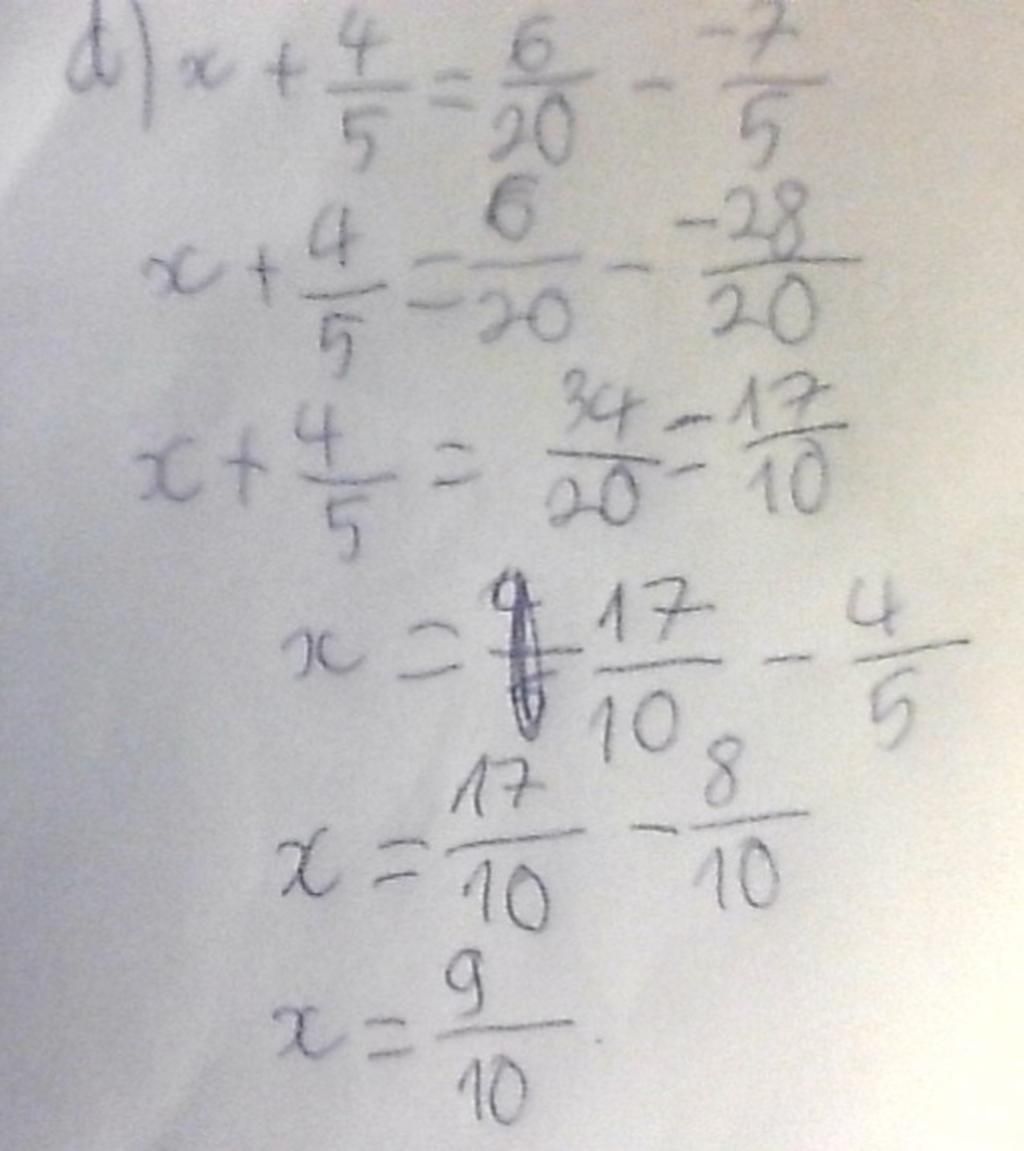 d) x + 4/5 = 6/20 - -7/5
x + 4/5 = 6/20 - -28/20
x + 4/5 = 34/20 = 17/10
x = 17/10 - 4/5
x = 17/10 - 8/10
x = 9/10.